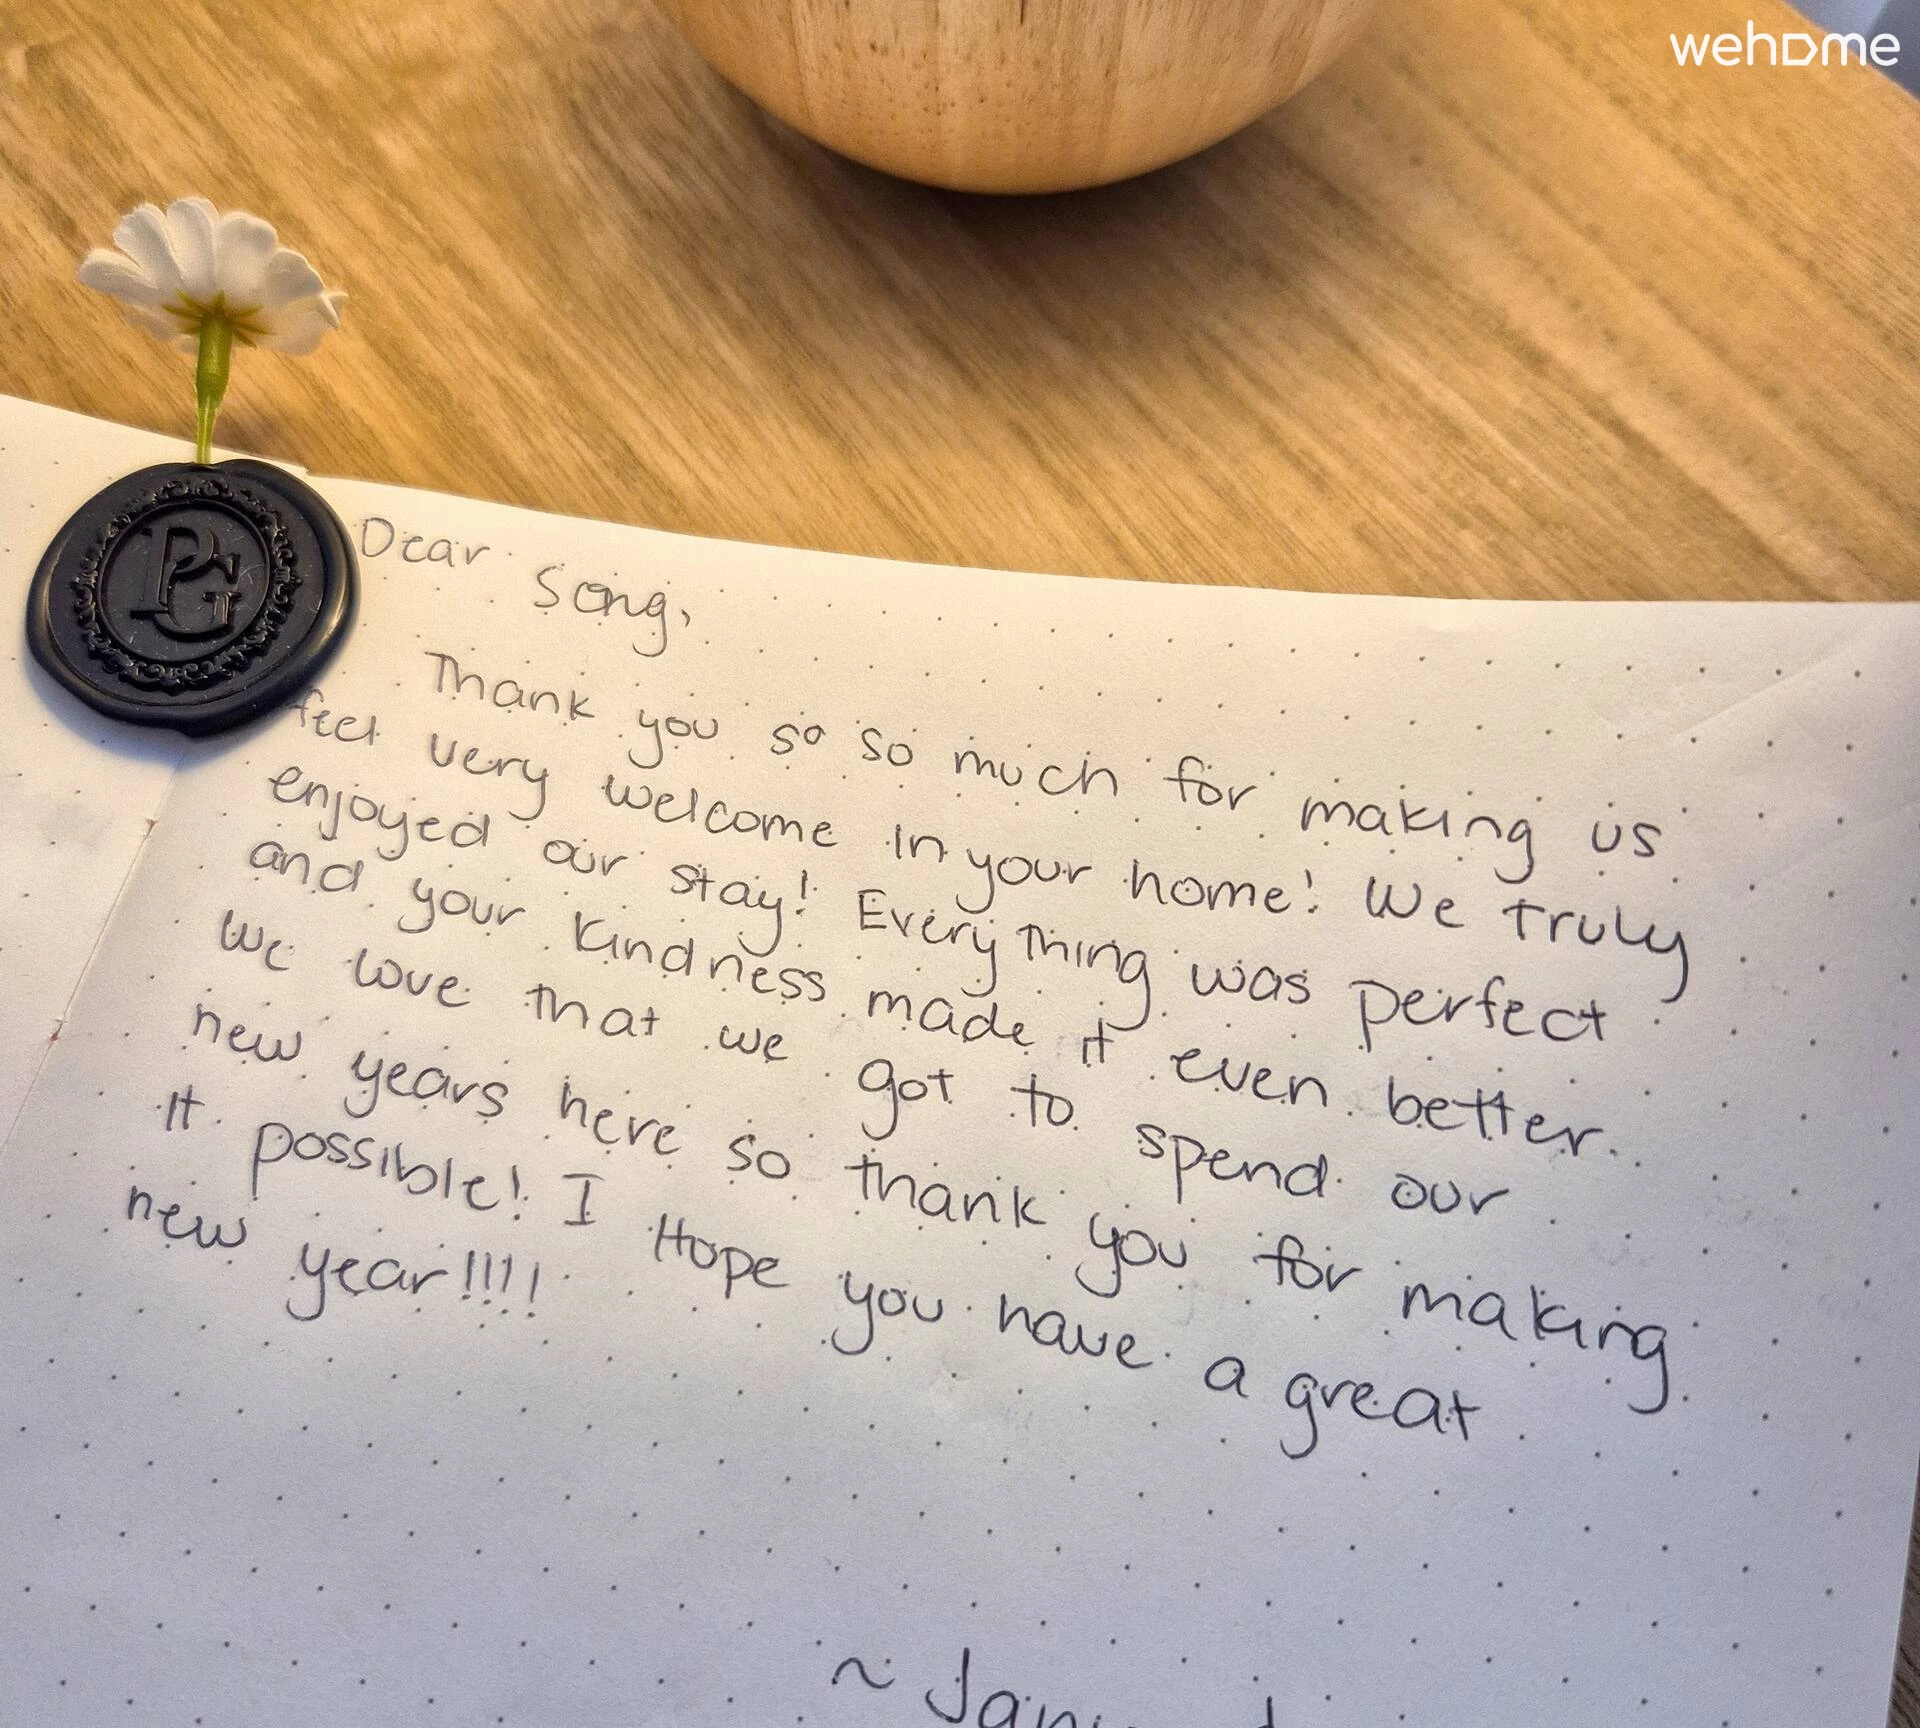 wehome
PG
Dear Song,
Thank you so so much for making us
feel very welcome in your home! We truly
enjoyed our stay! Everything was perfect
and your kindness made it even better.
We love that we got to spend our
new years here so thank you for making
it possible! I Hope you have a great
new year!!!!
~